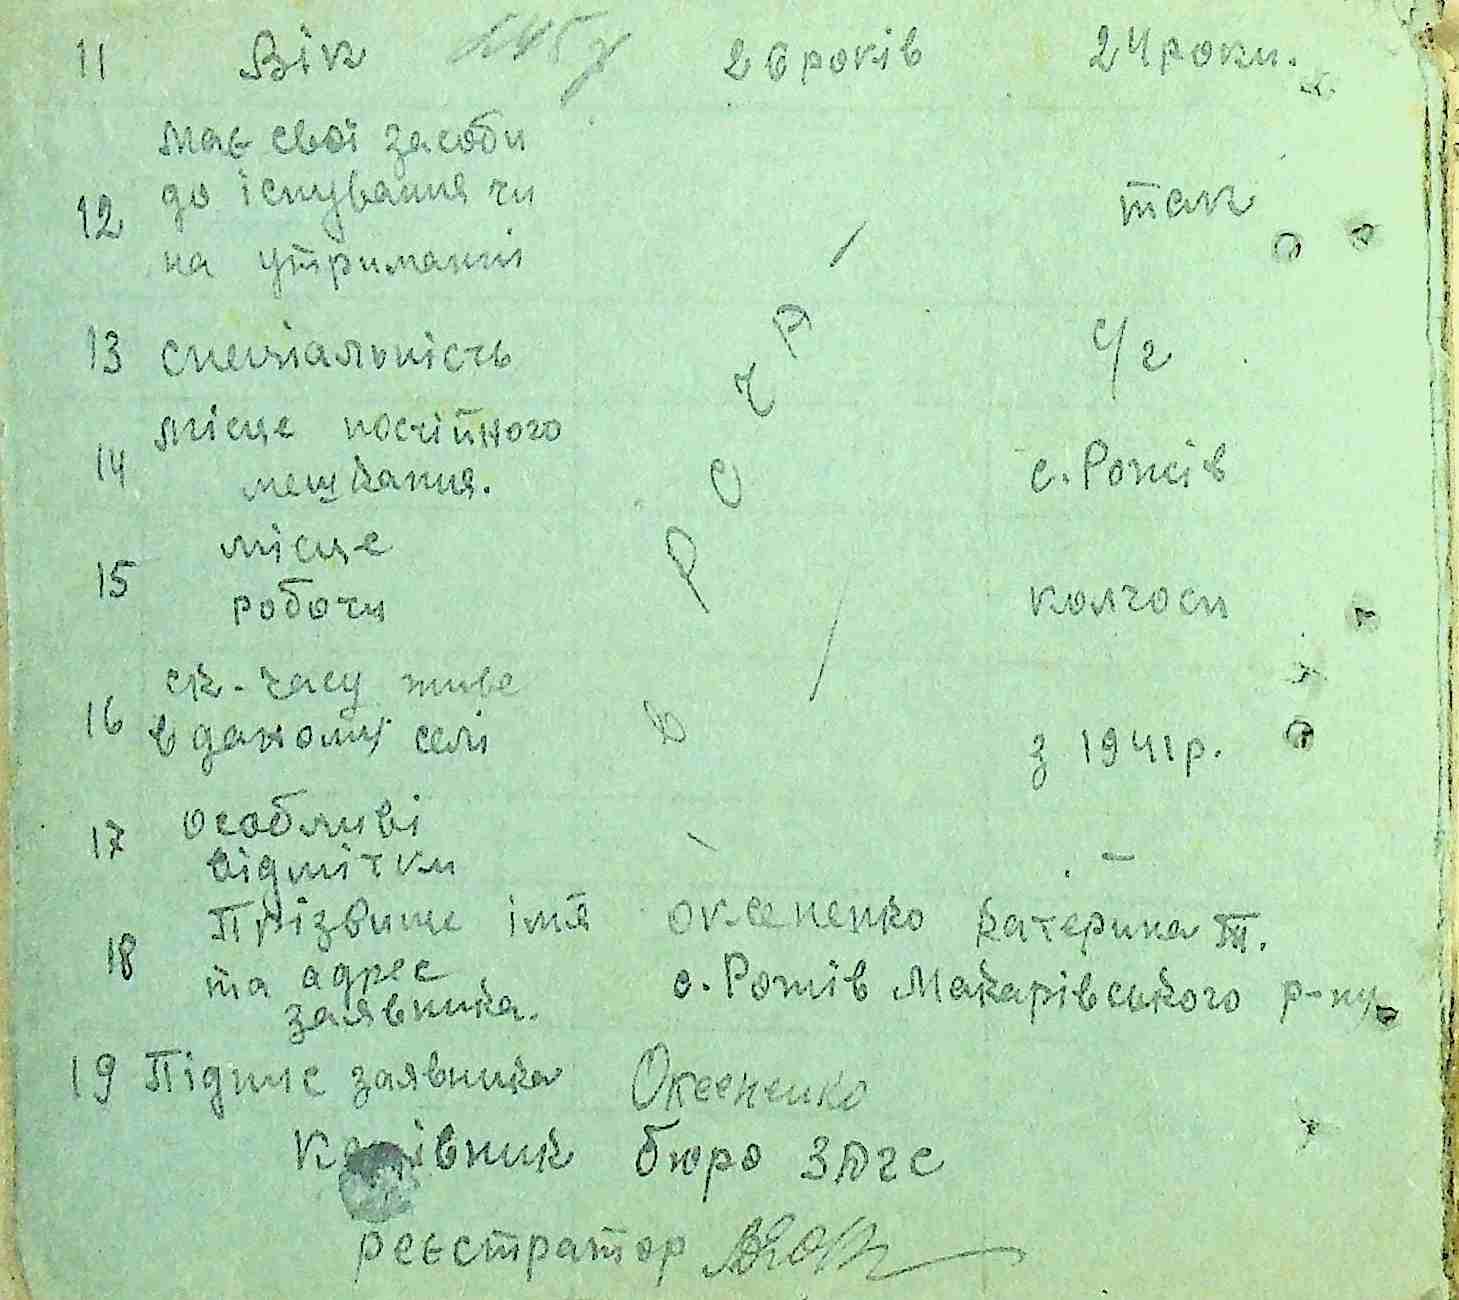 11 Вік 26 років 24 роки.
має свої засоби
12 до існування чи так
на утриманні
13 спеціальність с/г
місце постійного
14 мешкання. с. Рожів
місце
15 роботи колгосп
ск. часу живе
16 в даному селі з 1941 р.
17 особливі – –
відмітки
18 Прізвище імя Оксененко Катерина
та адрес с. Рожів Макарівського р-ну
заявника.
19 Підпис заявника Оксененко
Керівник бюро ЗАГС
реєстратор